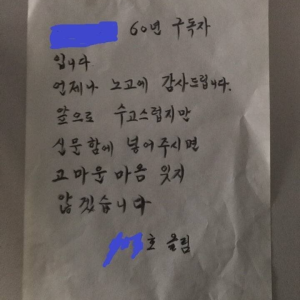 60년 구독자
입니다
언제나 노고에 감사드립니다.
앞으로 수고스럽지만
신문함에 넣어주시면
고마운 마음 잊지
않겠습니다
호 올림